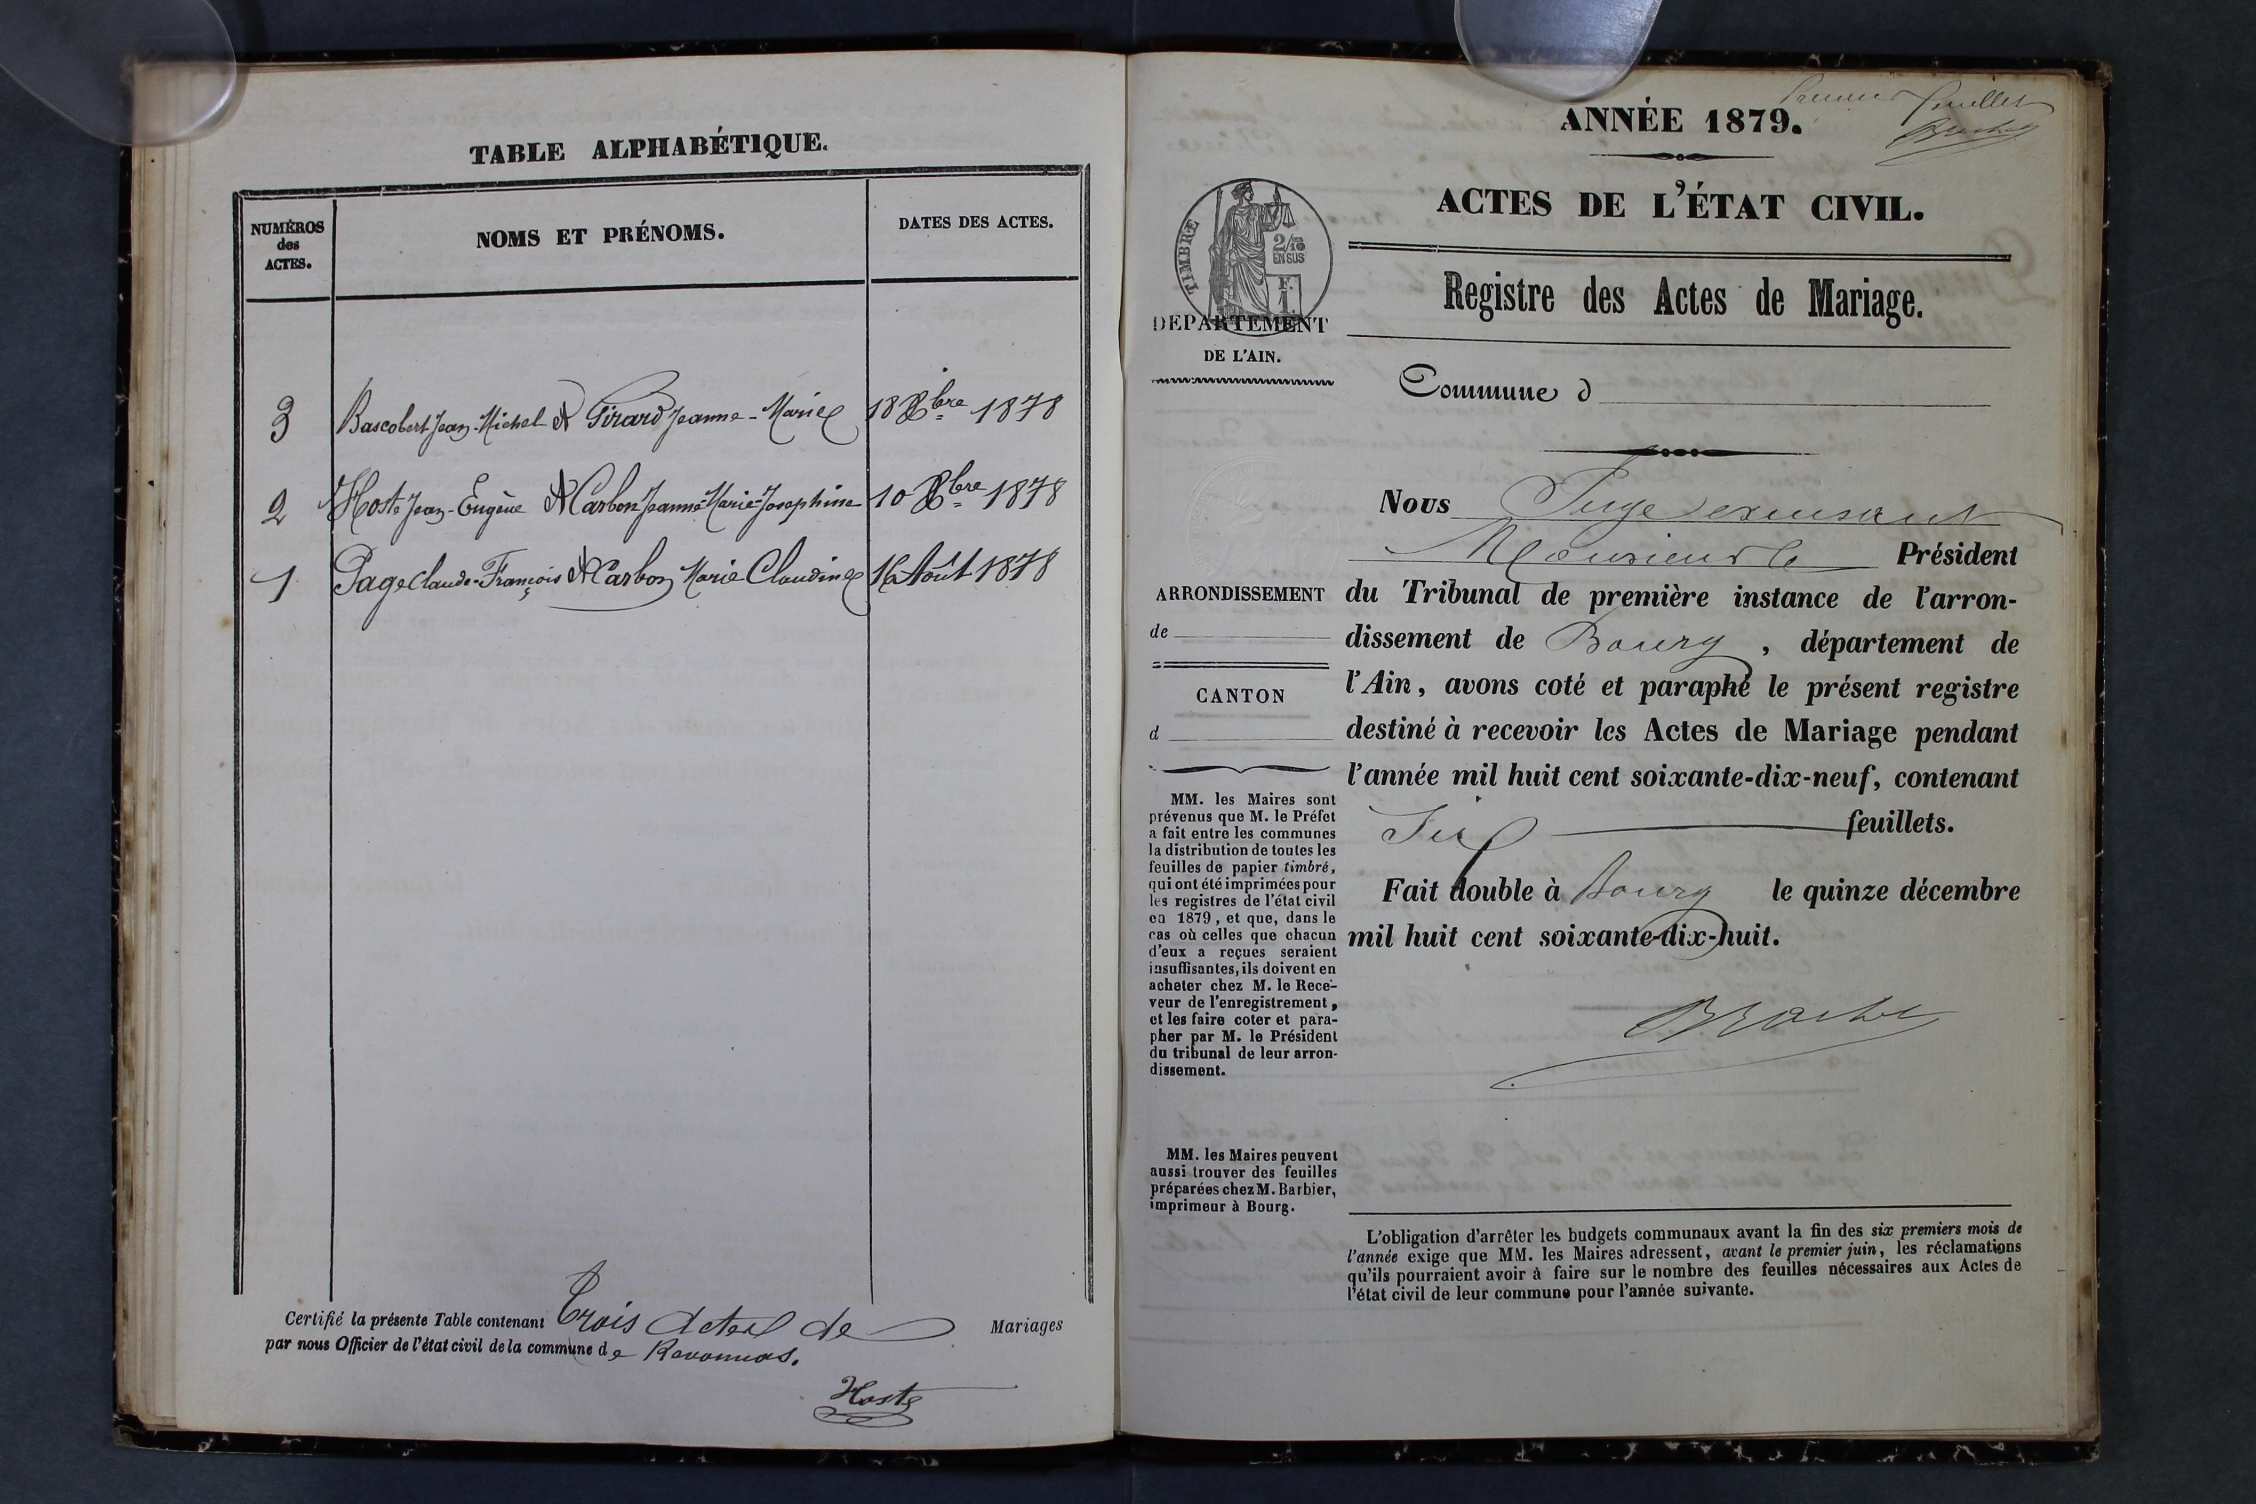 TABLE ALPHABÉTIQUE.
NUMÉROS
des
ACTES.
NOMS ET PRÉNOMS.
DATES DES ACTES.
3 Bascobert Jean-Michel & Girard Jeanne-Marie 18 Xbre 1878
2 Hoste Jean-Eugène & Carbon Jeanne-Marie-Josephine 10 Xbre 1878
1 Page Claude-François & Carbon Marie Claudine 16 Août 1878
Certifié la présente Table contenant Trois Actes de Mariages
par nous Officier de l'état civil de la commune de Revonnas.
Hoste
Premier feuillet
ANNÉE 1879.
ACTES DE L'ÉTAT CIVIL.
TIMBRE
2/10
EN SUS
F.
1.
Registre des Actes de Mariage.
DEPARTEMENT
DE L'AIN.
Commune d
Nous Juge
Monsieur le Président
du Tribunal de première instance de l'arron-
dissement de Bourg, département de
l'Ain, avons coté et paraphé le présent registre
destiné à recevoir les Actes de Mariage pendant
l'année mil huit cent soixante-dix-neuf, contenant
Six feuillets.
Fait double à Bourg le quinze décembre
mil huit cent soixante-dix-huit.
ARRONDISSEMENT
de
CANTON
d
MM. les Maires sont
prévenus que M. le Préfet
a fait entre les communes
la distribution de toutes les
feuilles de papier timbré,
qui ont été imprimées pour
les registres de l'état civil
en 1879, et que, dans le
cas où celles que chacun
d'eux a reçues seraient
insuffisantes, ils doivent en
acheter chez M. le Rece-
veur de l'enregistrement,
et les faire coter et para-
pher par M. le Président
du tribunal de leur arron-
dissement.
MM. les Maires peuvent
aussi trouver des feuilles
préparées chez M. Barbier,
imprimeur à Bourg.
L'obligation d'arrêter les budgets communaux avant la fin des six premiers mois de
l'année exige que MM. les Maires adressent, avant le premier juin, les réclamations
qu'ils pourraient avoir à faire sur le nombre des feuilles nécessaires aux Actes de
l'état civil de leur commune pour l'année suivante.